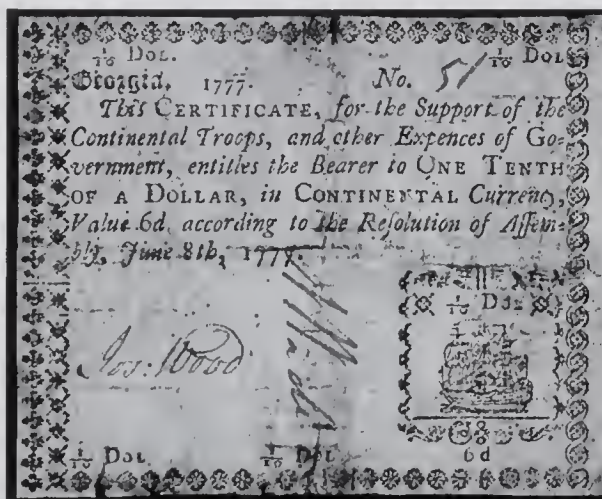 1/10 Dol. 1/10 Dol
Georgia, 1777. No. 51
This CERTIFICATE, for the Support of the
Continental Troops, and other Expences of Go-
vernment, entitles the Bearer to ONE TENTH
OF A DOLLAR, in CONTINENTAL Currency,
Value 6d, according to the Reſolution of Aſſem-
bly, June 8th, 1777.
1/10 Dol
Jos: Wood
1/10 Dol. 1/10 Dol 6d